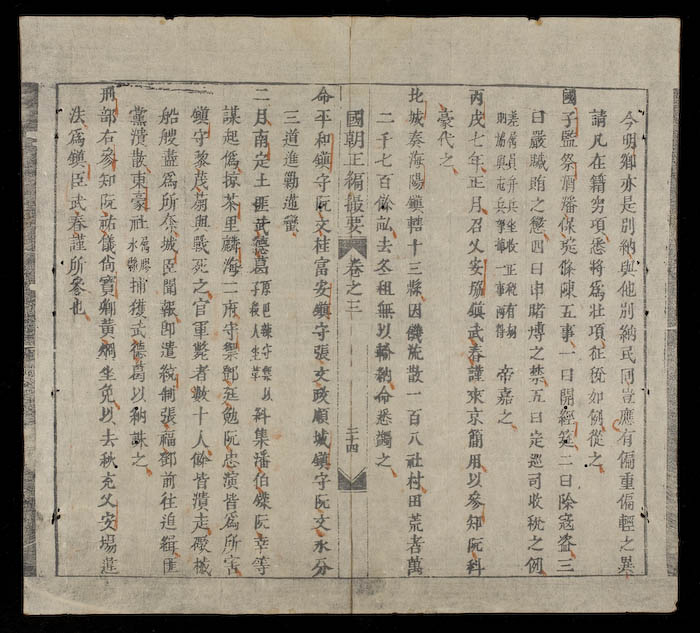 今明鄉亦是別納與他別納民同豈應有偏重偏輕之異
請凡在籍窮項悉將為壯項征稅如例從之
國子監祭酒潘保奠條陳五事一曰開經筵二曰除寇盜三
曰嚴贓賄之懲四曰申賭博之禁五曰定巡司收稅之例
差屬員弁兵坐收正稅有剩
一事兩得
帝嘉之
丙戌七年正月召乂安協鎮武春謹來京簡用以參知阮科
豪代之
北城奏海陽鎮轄十三縣因饑流散一百八社村田荒者萬
二千七百餘畝去冬租無以輸納命悉蠲之
國朝正編撮要 卷之三 二十四
命平和鎮守阮文桂富安鎮守張文政順城鎮守阮文永分
三道進勦蠻
二月南定土匪武德葛原邑守集以子殺人坐革科集潘伯鐸阮幸等
謀起偽掠茶里麟海二府守禦鄧廷勉阮忠演皆為所害
鎮守黎茂與戰死之官軍斃者數十人餘皆潰走礮械
船艘盡為所奪城臣聞報即遣統制張福鄧前往追緝匪
黨潰散東豪社屬膠水縣捕獲武德葛以納誅之
刑部右參知阮祐儀尚寶卿黃綱坐免以去秋充乂安場違
法為鎮臣武春謹所參也